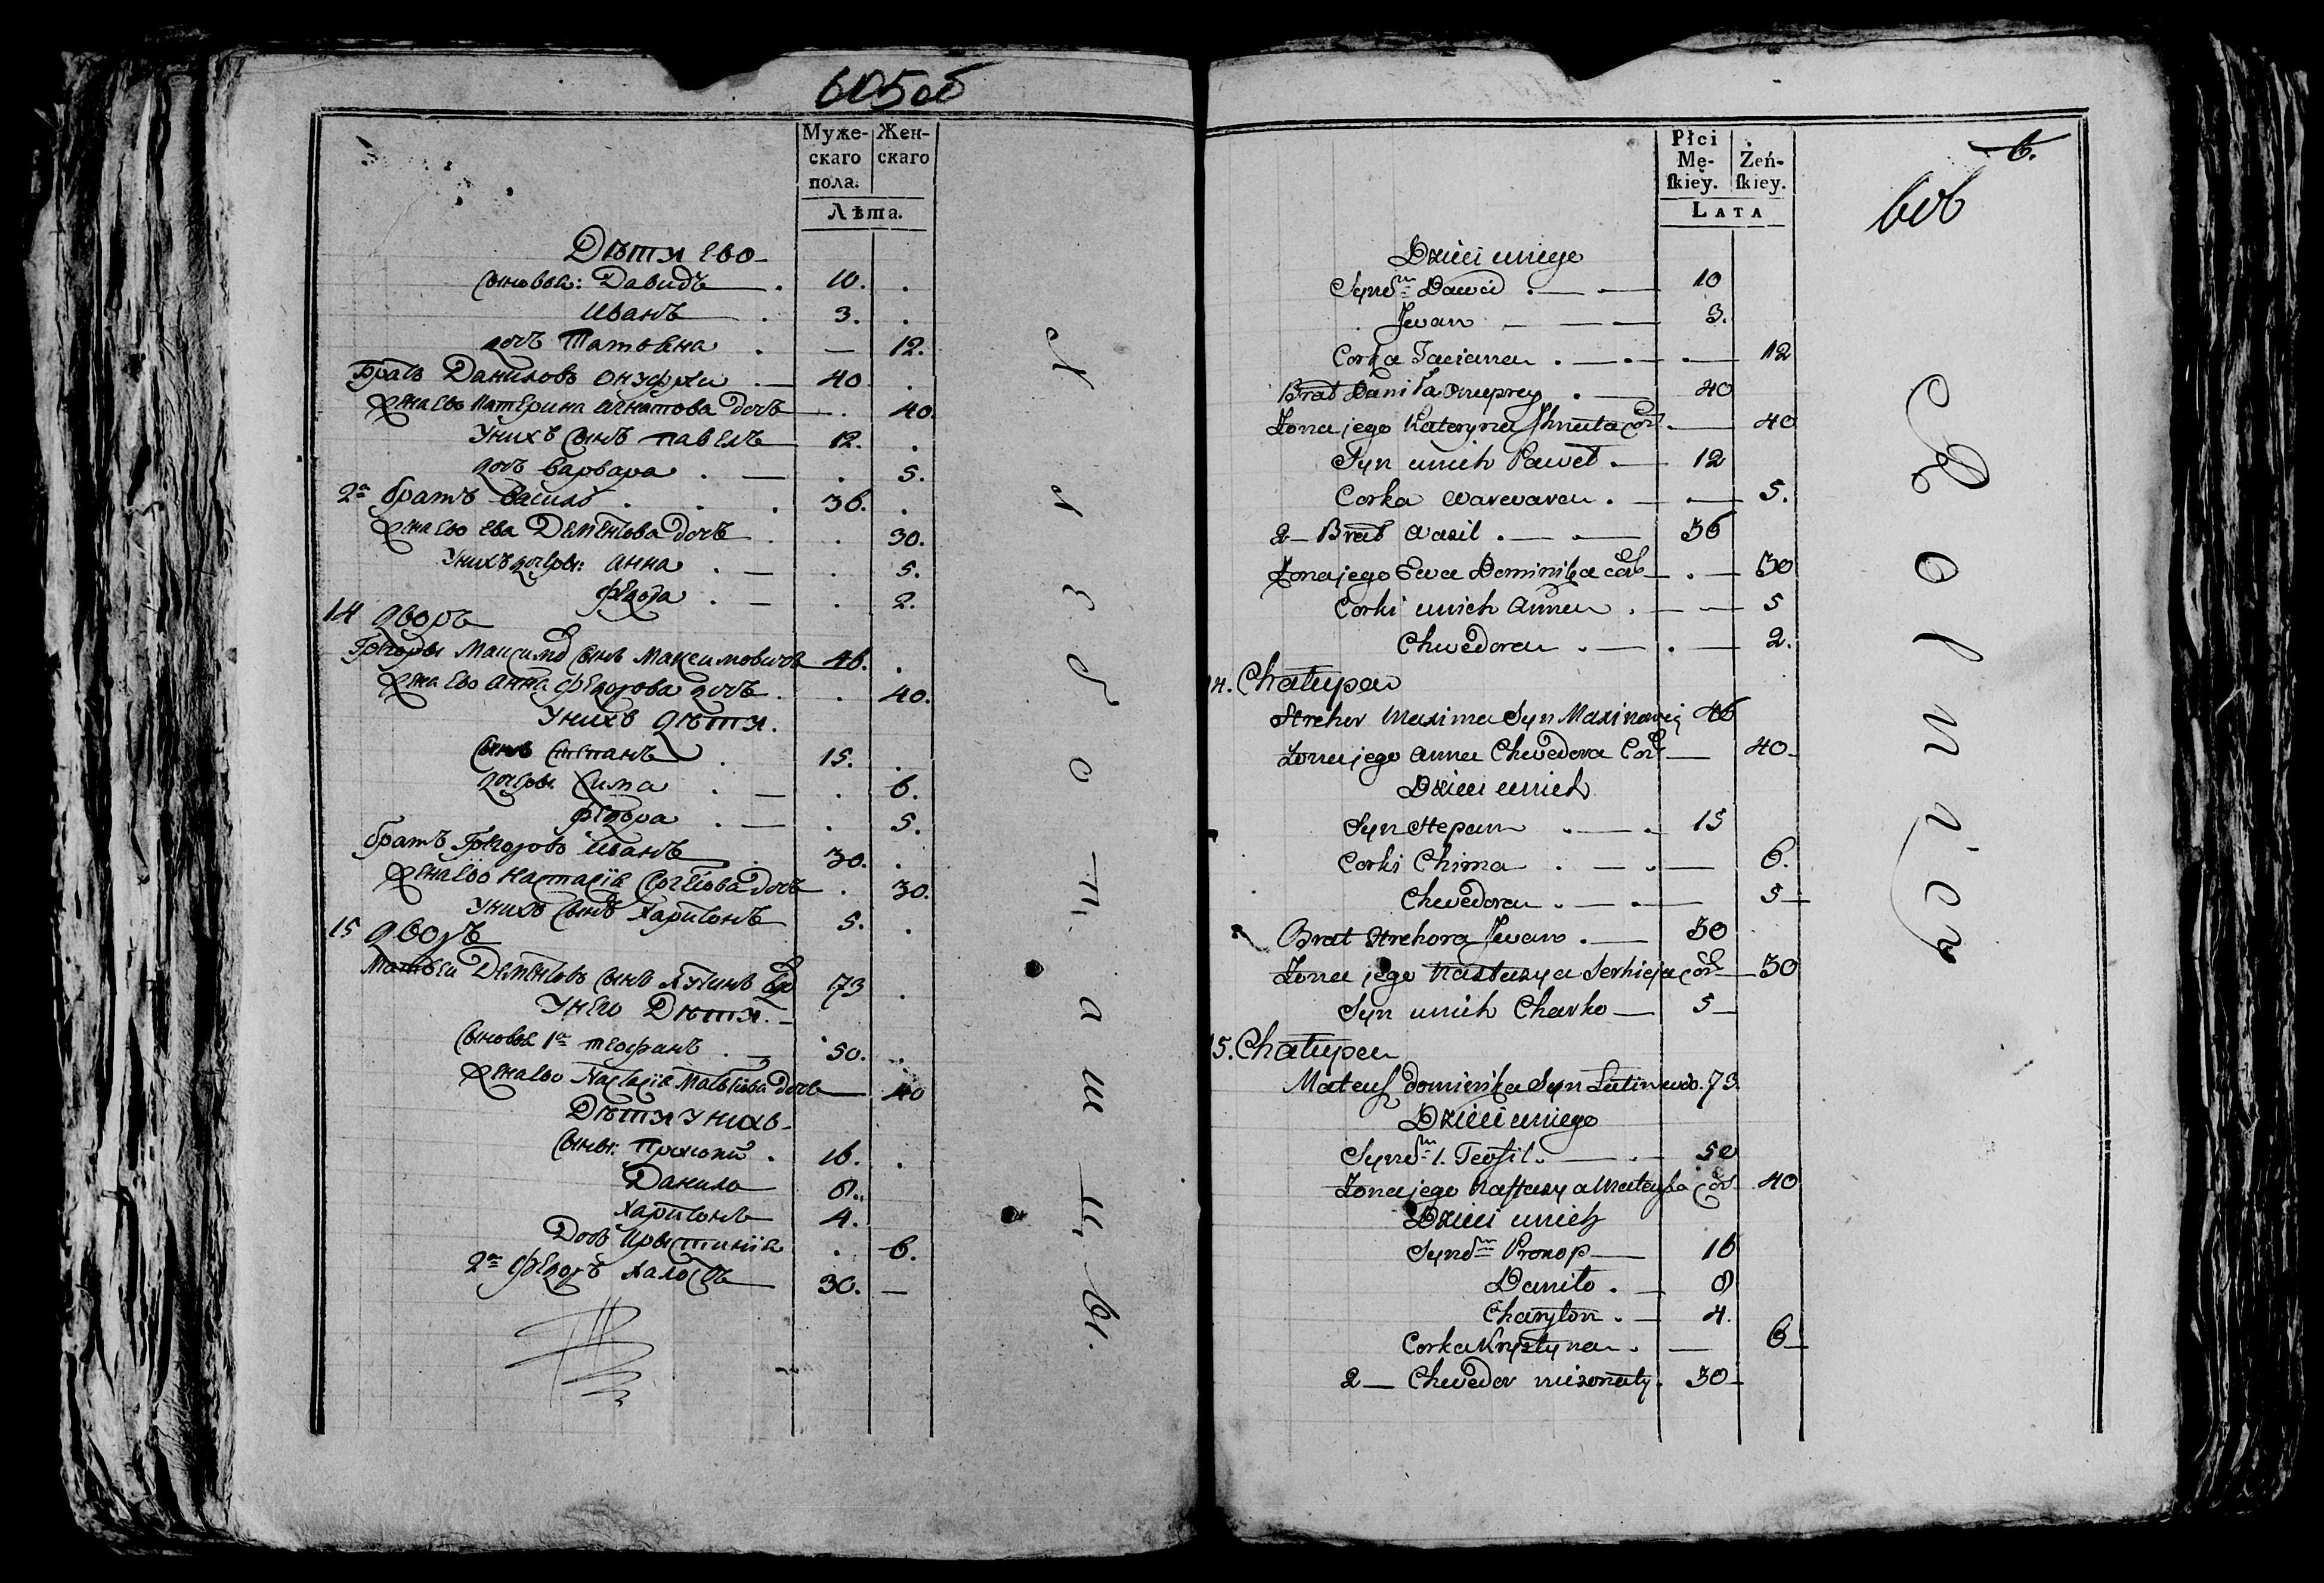 605 об
Муже- Жен-
скаго скаго
пола.
Лѣта.
Дѣти ево
сыновья: Давидъ 10.
Иванъ 3.
дочь Татьяна 12.
Братъ Даниловъ Онуфрій 40
Жена ево Катерина Игнатова дочь 40.
У нихъ сынъ Павелъ 12.
дочь Варвара 5.
2й братъ Василь 36.
Жена ево Ева Дементьова дочь 30.
У нихъ дочери: Анна 5.
Федора 2.
14 дворъ
Максима сынъ Максимовичъ 46.
Жена ево Анна Федорова дочь 40.
У нихъ дѣти.
Сынъ Степанъ 15.
дочери Хима 6.
Федора 5.
братъ Иванъ 30.
Жена ево Настасія Сергѣева дочь 30.
У нихъ сынъ Харитонъ 5.
15 дворъ
Матвѣй Дементьовъ сынъ 73
У него Дѣти.
Сыновья 1й Теофанъ 50.
Жена ево Настасія Матвѣева дочь 40
Дѣти у нихъ
Сыны: Прокопій 16.
Данило 8.
Харитонъ 4.
Дочь Крыстинія 6.
2й Федоръ Халостъ 30.
Хлѣбопашцы.
Płci
Mę- Żeń-
ſkiey. ſkiey.
LATA
6.
606
Dzieci u niego
Synów Dawid 10
Jwan 3.
Corka Taciana 12
Brat Daniła Onuprey 40
Zona jego Kateryna Ihnata Cór. 40
Syn u nich Paweł 12
Corka Warwara 5.
2 Brat Wasil 36
Zona jego Ewa Dominika cór 30
Corki u nich Anna 5
Chwedora 2.
14. Chałupa
Hrehor Maxima Syn Maximowicz 46
Zona jego Anna Chwedora Cór 40
Dzieci u nich
Syn Stepan 15
Corki Chima 6.
Chwedora 5
Brat Hrehora Jwan 30
Zona jego Nastazya Serhieja cór 30
Syn u nich Charko 5
15. Chałupa
Mateuſz Dominika Syn 73.
Dzieci u niego
Synów 1. Teofil 50
Zona jego Naſtazya Mateuſza Cór 40
Dzieci u nich
Synów Prokop 16
Daniło 8
Charyton 4.
Corka Krystyna 6
2 Chwedor nieżonaty 30
Rolnicy